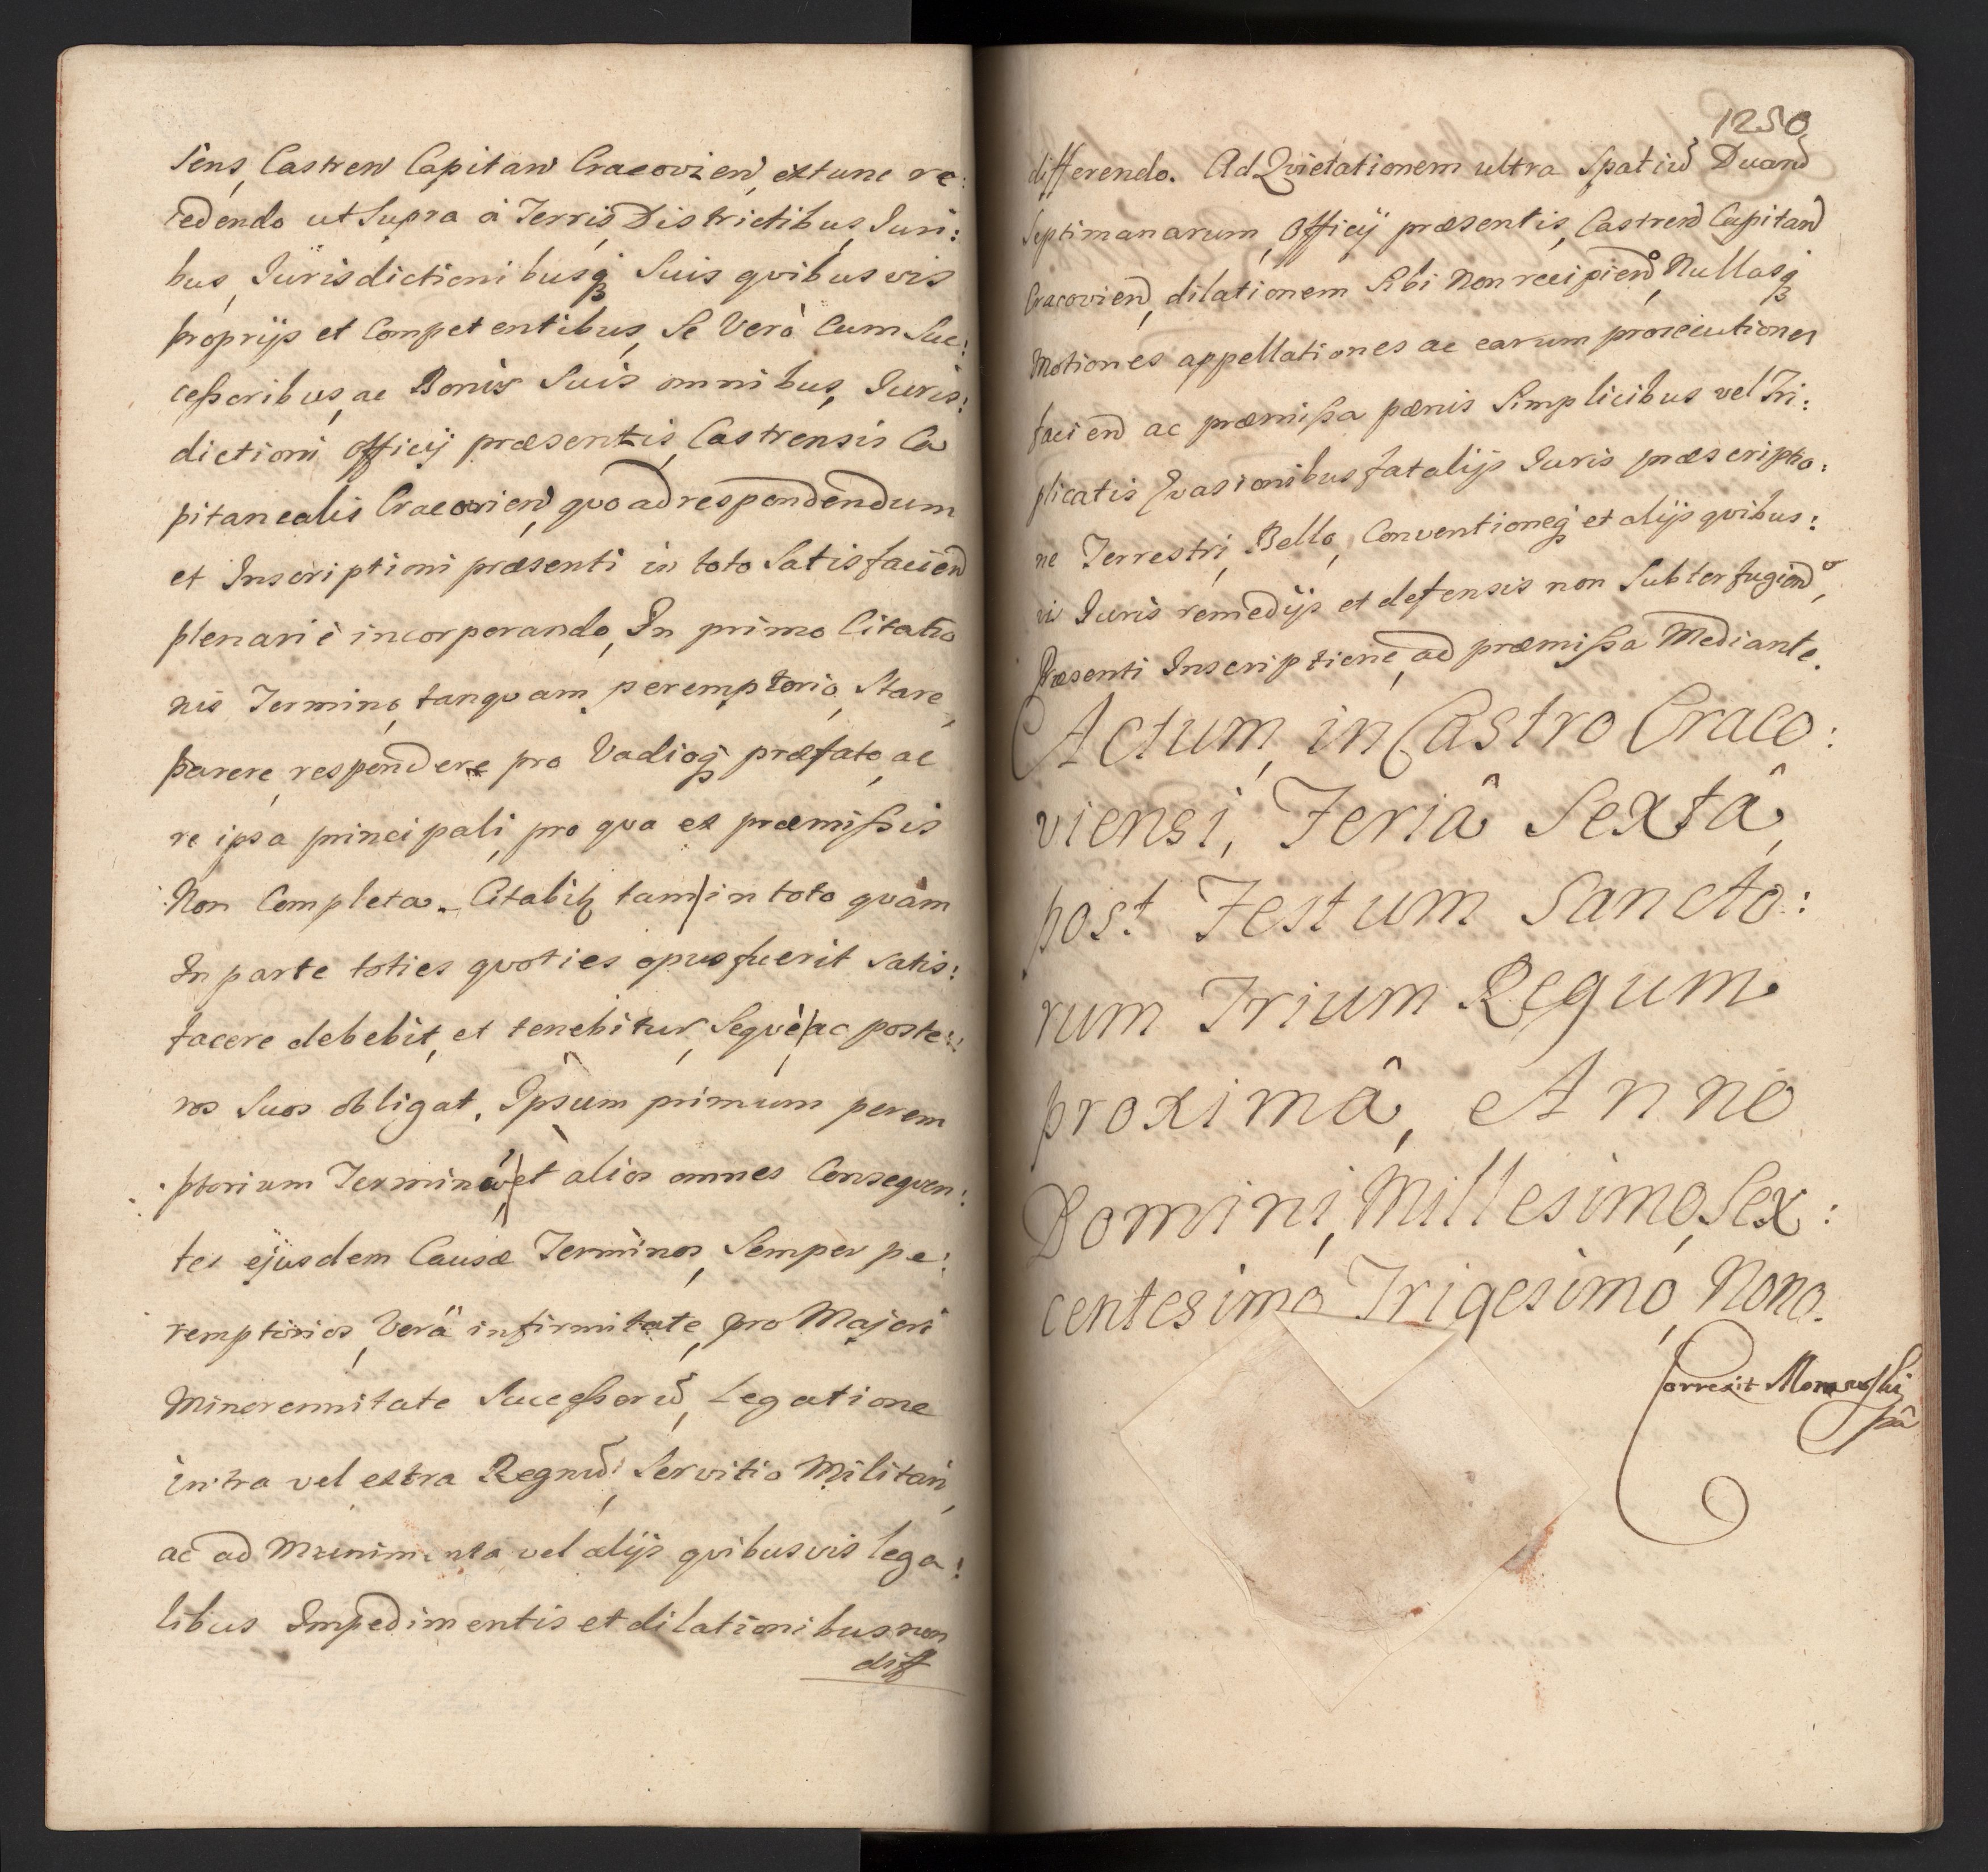 sens, Castren Capitan Cracovien, extunc re:
cedendo ut supra à Terris Districtibus, Juri:
bus, Jurisdictionibusq; Suis qvibusvis
proprijs et Competentibus, Se Verò Cum Suc:
ceßoribus, ac Bonis Suis omnibus, Juris:
dictioni officij præsentis, Castrensis Ca
pitanealis Cracovien, qvo ad respondendum
et Inscriptioni præsenti in toto Satisfaciend
plenariè incorporando, In primo Citatio
nis Termino, tanqvam peremptorio, Stare,
parere, respondere pro Vadioq; præfato, ac
re ipsa principali, pro qva ex præmißis
Non Completa. Citabitq; tam in toto qvàm
In parte toties qvoties opus fuerit satis:
facere debebit, et tenebitur, Seqvè ac poste:
ros Suos obligat. Ipsum primum perem
ptorium Terminū, et alios omnes Conseqven:
tes ejusdem Causæ Terminos, Semper pe:
remptorios, Verâ infirmitate, pro Majori
Minorennitate Succeßorū, Legatione
intra vel extra Regnū, Servitio Militari,
ac ad Munimenta vel alijs qvibusvis lega:
libus Impedimentis et dilationibus non
diff
1250
differendo. Ad Qvietationem ultra Spatiū Duarū
Septimanarum, Officij præsentis, Castren Capitan
Cracovien, dilationem Sibi Non recipiendo, Nullasq;
Motiones appellationes ac earum prosecutiones
faciend ac præmißa pænis Simplicibus vel Tri:
plicatis Evasionibus fatalijs Juris præscriptio:
ne Terrestri, Bello, Conventioneq; et alijs qvibus:
vis Juris remedijs et defensis non Subterfugiendo,
Præsenti Inscriptione, ad præmißa Mediante.
Actum in Castro Craco:
viensi, Feriâ Sextâ,
post Festum Sancto:
rum Trium Regum
proximâ, Anno
Domini, Millesimo, Sex:
centesimo Trigesimo, Nono.
Correxit Morawski